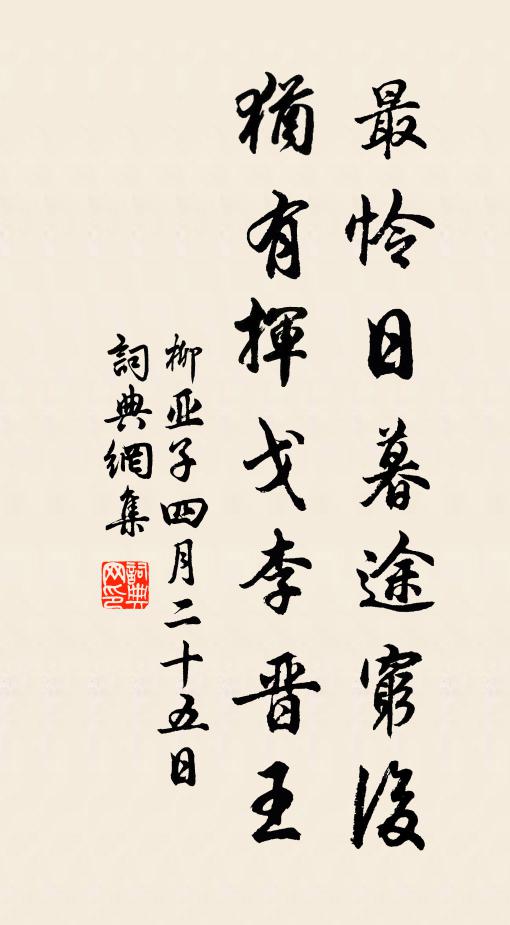 最怜日暮途窮後
猶有揮戈李晋王
柳亚子四月二十五日
詞典網集
詞典网印